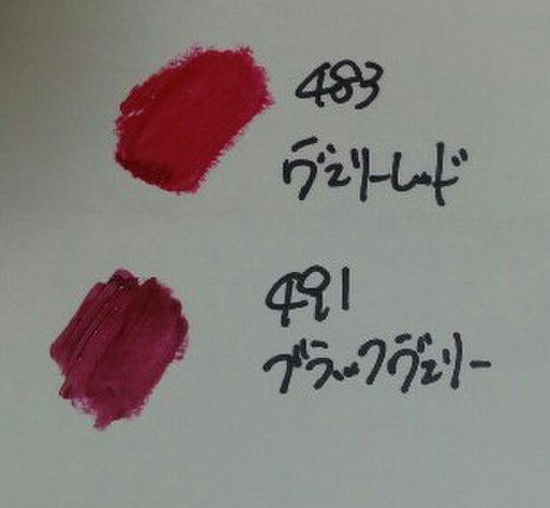 483
ヴェリーレッド
491
ブラックヴェリー